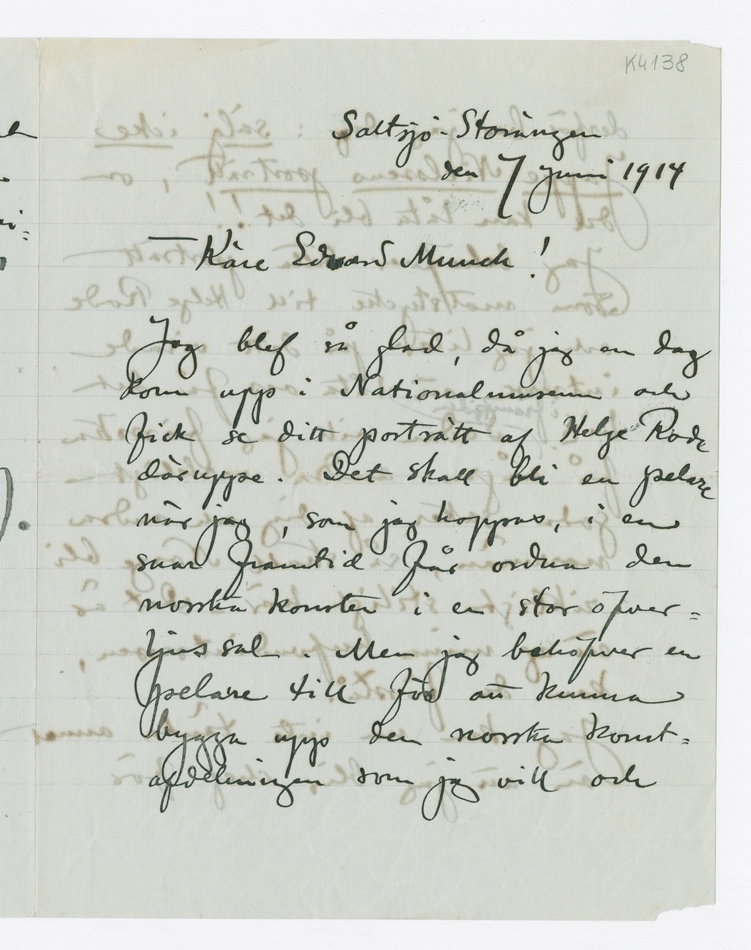 K4138
Saltsjö-Storängen
den 7 juni 1914
Käre Edvard Munch!
Jag blef så glad, då jag en dag
kom upp i Nationalmuseum och
fick se ditt porträtt af Helge Rode
däruppe. Det skall bli en pelare
när jag, som jag hoppas, i en
snar framtid får ordna den
norska konsten i en stor öfver=
ljussal. Men jag behöfver en
pelare till för att kunna
bygga upp den norska konst=
afdelningen som jag vill och